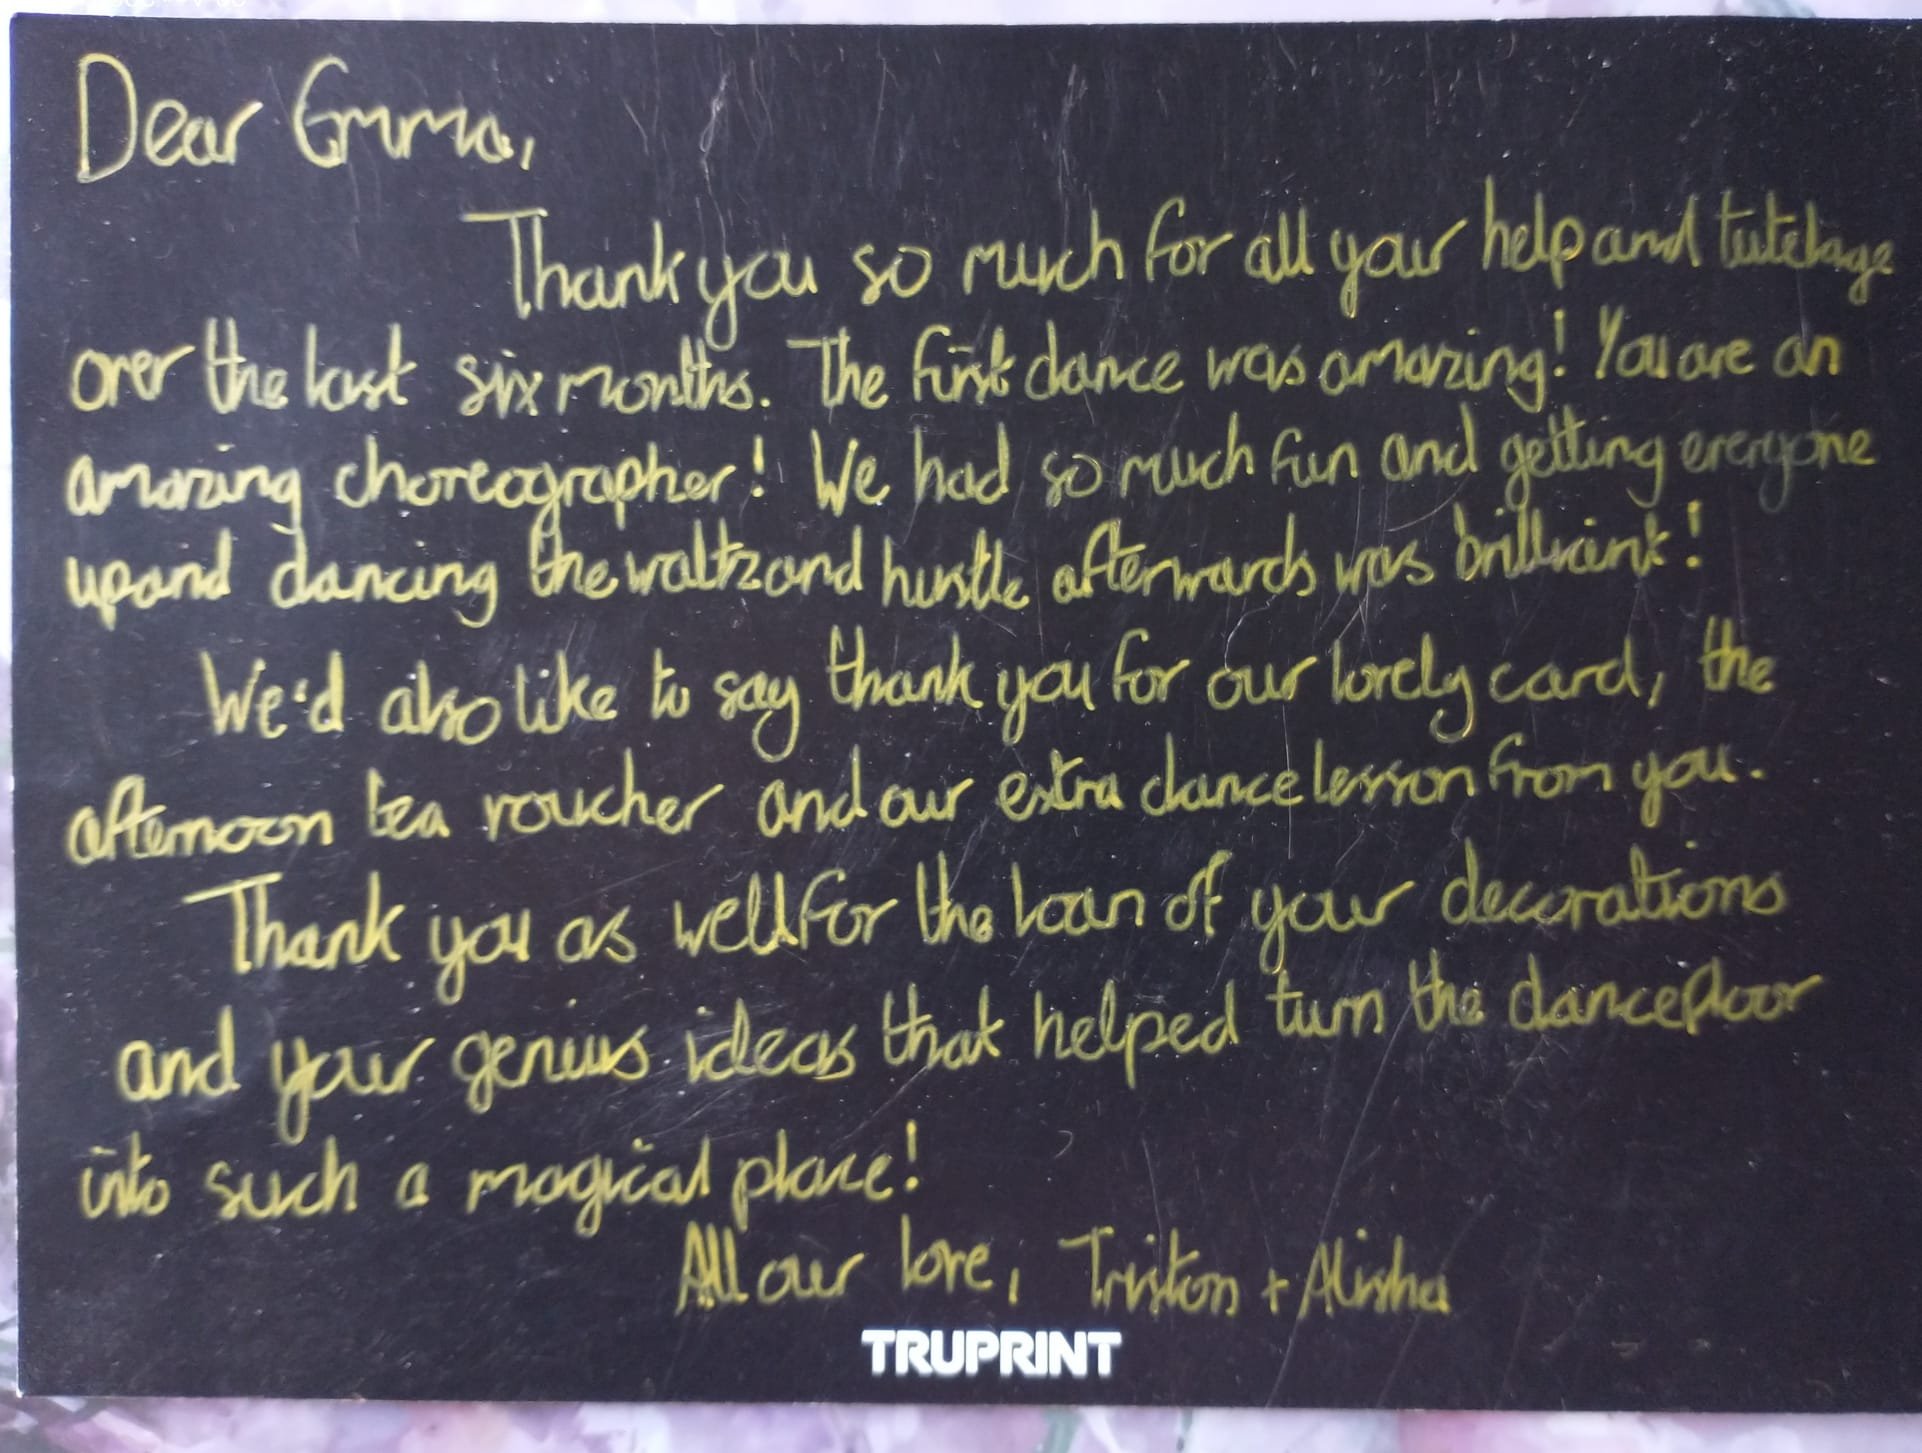 Dear Emma,
Thank you so much for all your help and tutelage
over the last six months. The first dance was amazing! You are an
amazing choreographer! We had so much fun and getting everyone
up and dancing the waltz and hustle afterwards was brilliant!
We'd also like to say thank you for our lovely card, the
afternoon tea voucher and our extra dance lesson from you.
Thank you as well for the loan of your decorations
and your genius ideas that helped turn the dancefloor
into such a magical place!
All our love, Triston + Alisha
TRUPRINT